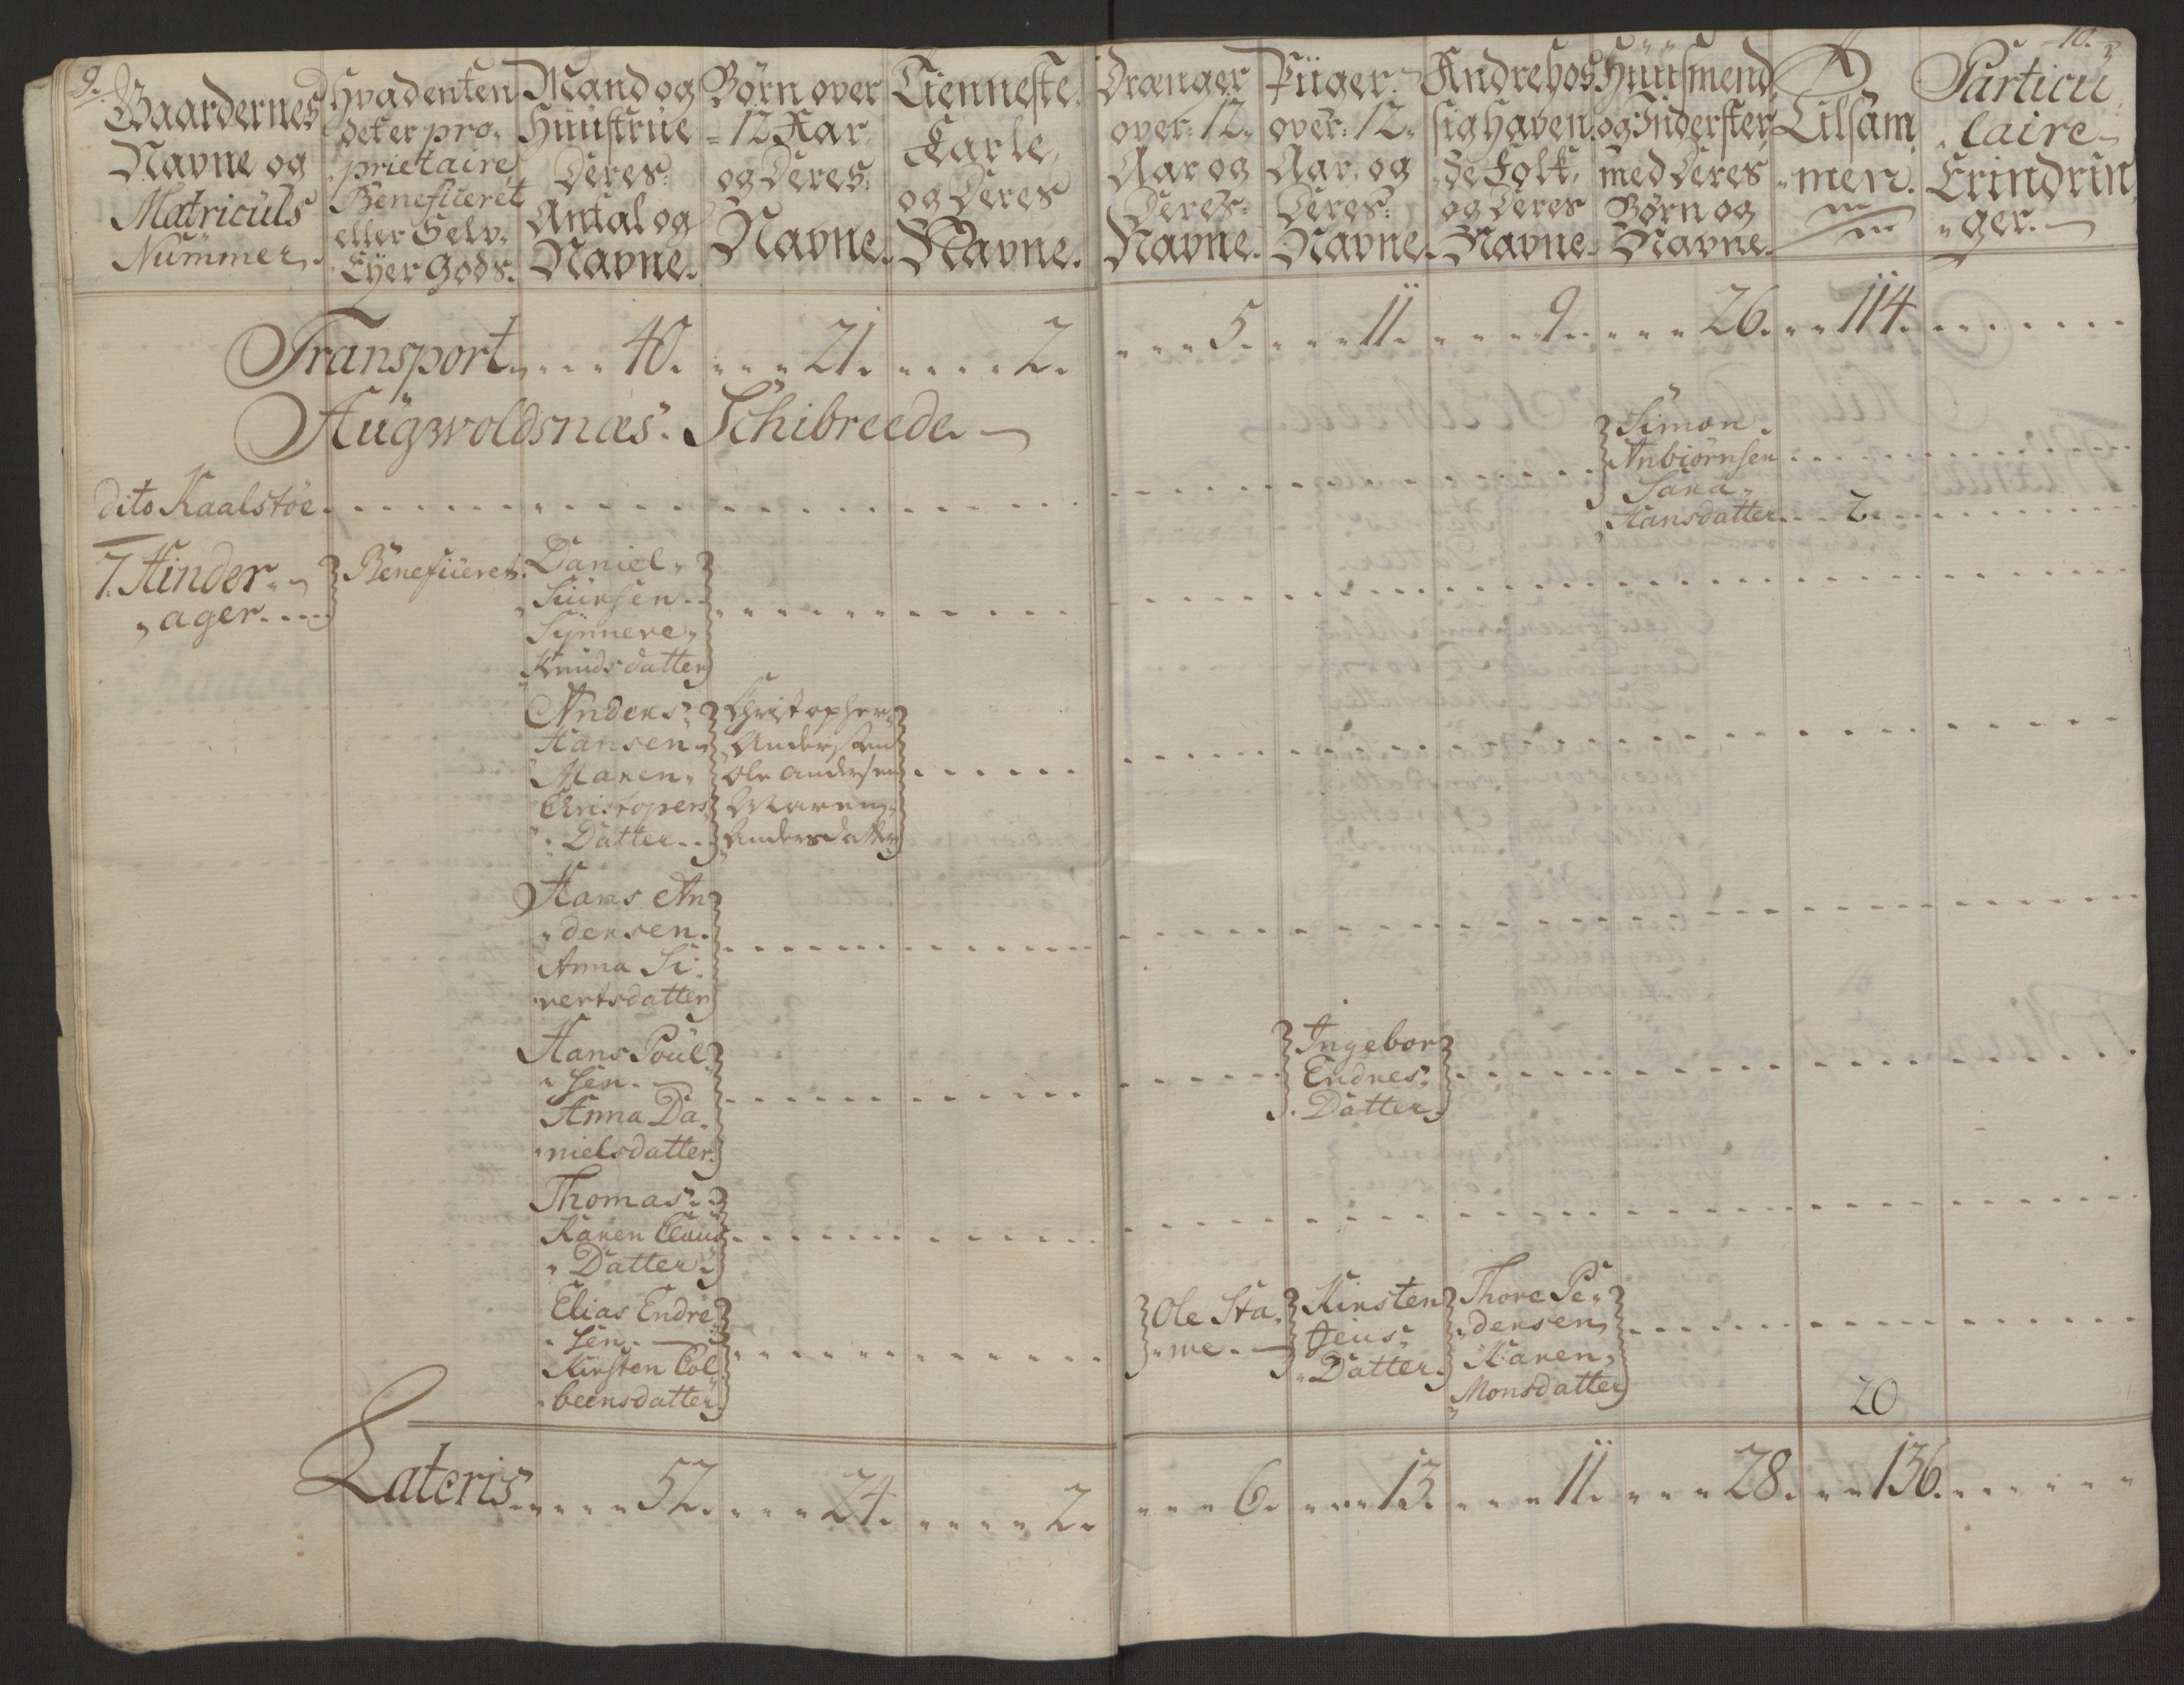 9.
Gaardernes
Navne og
Matriculs
Nummer.
Hvad enten
det er pro„
„prietaire
Beneficeret
eller Selv„
Eÿer Gods.
Mand og
Hüüstrüe
Deres
Antal og
Navne.
Børn over
12 Aar
og Deres
Navne.
Tienneste
Karle,
og Deres
Navne.
Drænger
over 12
Aar og
Deres
Navne.
Piiger
over 12
Aar, og
Deres
Navne.
Andre hos
sig haven„
„de Folk,
og Deres
Navne.
Hüüsmend
og Inderster
med Deres
Børn og
Navne.
Tilsam„
„men.
10.
Particu„
„laire
Erindrin„
„ger.
Transport. 40. 21. 2. 5. 11. 9. 26. 114.
Augwoldsnæs. Schibreede.
dito Kaalstöe.
Simon
Anbiörnsen
Sara
Hansdatter. 2.
7. Hinder„
„ager.
Beneficeret.
Daniel
Siursen.
Synneve
Knudsdatter
Anders
Hansen
Maren
Christopers
Datter.
Christopher
Andersen
Ole Andersen
Maren
Andersdatter
Hans An„
„dersen.
Anna Si„
„vertsdatter
Hans Poül„
„sen.
Anna Da„
„nielsdatter.
Ingebor
Endres
Datter.
Thomas
Karen Claus
Datter.
Elias Endre„
„sen.
Kirsten Col„
„beensdatter.
Ole Sta„
„we.
Kirsten
Datter.
Thore Pe„
„dersen
Karen
Monsdatter
20
Lateris. 52. 24. 2. 6. 13. 11. 28. 136.